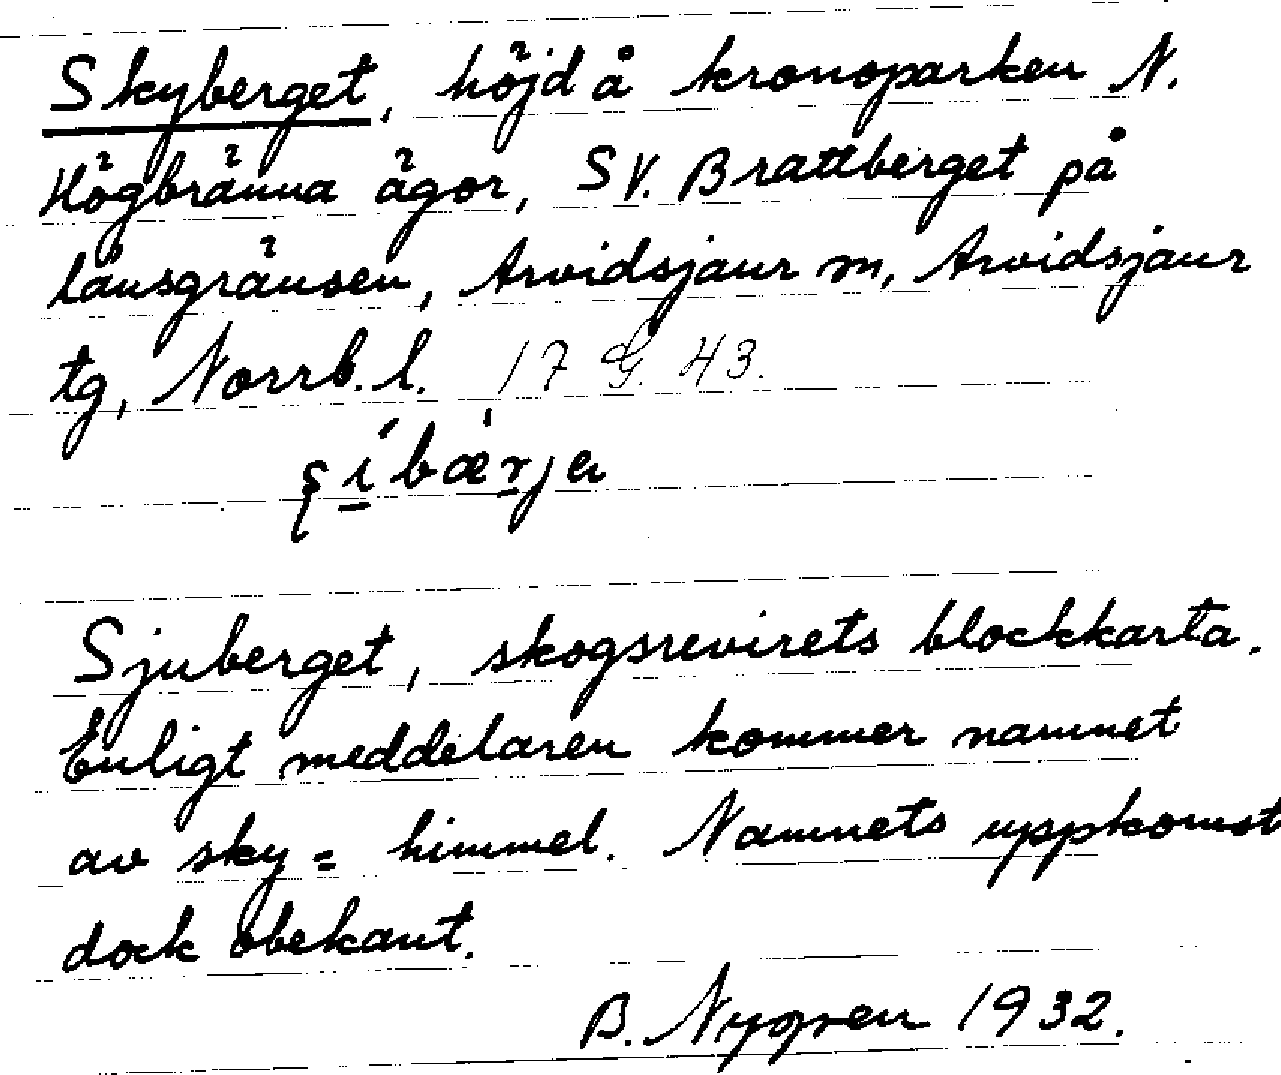 Skyberget, höjd å kronoparken N.
Högbränna ägor, SV. Brattberget på
länsgränsen, Arvidsjaur m, Arvidsjaur
tg, Norrb. l. 17 G. 43.
Sjuberget, skogsrevirets blockkarta.
Enligt meddelaren kommer namnet
av sky = himmel. Namnets uppkomst
dock obekant.
B. Nygren 1932.